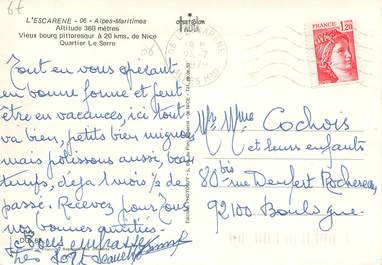 6t
L'ESCARENE - 06 - Alpes-Maritimes
Altitude 360 mètres
Vieux bourg pittoresque à 20 kms. de Nice
Quartier Le Serre
Tout en vous espérant
en bonne forme et peut
être en vacances, ici tout
va bien, petits bien mignons
mais polissons aussi, beau
temps, déja 1 mois ½ de
passé. Recevez pour Tous
nos bonnes amitiés.
vous embrasse
très fort
06
L'ESCARENE
18 H
1979
FRANCE
1,20
Mr Mme Cochois
et leurs enfants
80 bis rue Denfert Rochereau
92100 Boulogne